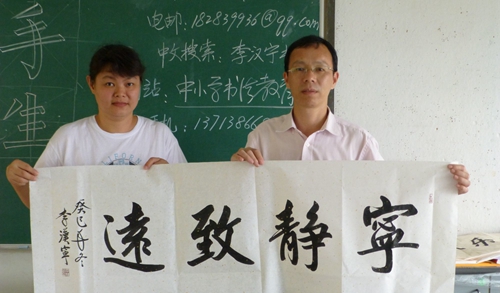 手
生
电邮: 182839936@qq.com
中文搜索: 李汉宁
站: 中小学书法教
机: 13713866
寧靜致遠
癸巳年冬
李漢寧